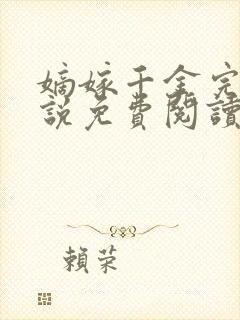 嫡嫁千金完
說免費閱讀
賴榮